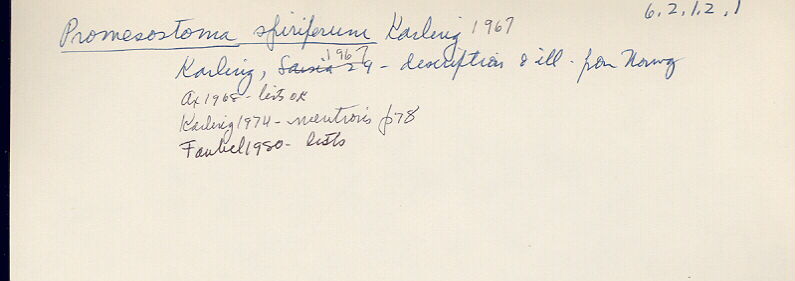 6.2.1.2.1
Promesostoma spiriferum Karling 1967
Karling, Sarsia 29 1967 - description & ill. from Norway
Ax 1968 - lists ok
Karling 1974 - mentions p78
Faubel 1980 - lists